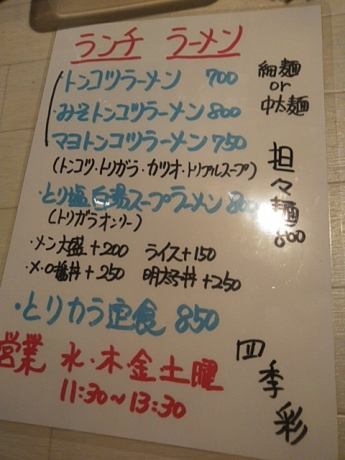 ランチ ラーメン
トンコツラーメン 700
・みそトンコツラーメン 800
マヨトンコツラーメン 750
(トンコツ・トリガラ・カツオ・トリプルスープ)
細麺
or
中太麺
・とり塩白湯スープラーメン 800
(トリガラオンリー)
担々麺
800
・メン大盛+200 ライス+150
+250 明太子丼+250
・とりカラ定食 850
営業 水・木・金土曜
11:30～13:30
四季彩